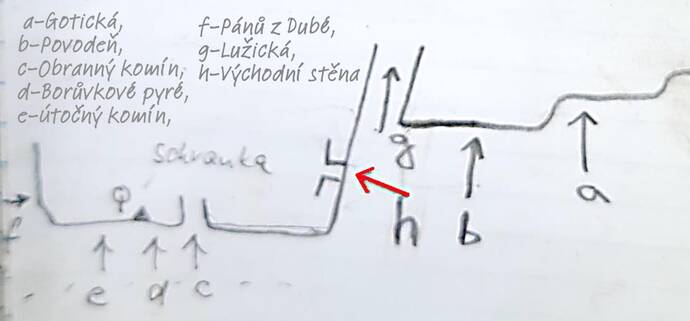 a-Gotická,
b-Povodeň,
c-Obranný komín,
d-Borůvkové pyré,
e-útočný komín,
f-Pánů z Dubé,
g-Lužická,
h-Východní stěna
schranka
f
e
d
c
g
h
b
a